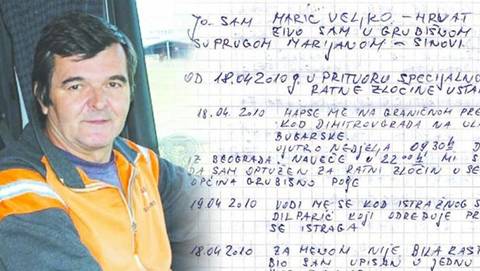 JA SAM MARIĆ VELJKO, - HRVAT
ŽIVO SAM U GRUBIŠNOM
SUPRUGOM MARIJANOM - SINOVI
OD 18.04 2010 g. U PRITVORU SPECIJALNO
RATNE ZLOČINE USTA
18.04. 2010 HAPSE ME NA GRANIČNOM PRE
KOD DIMITROVGRADA NA UL
BUGARSKE.
UJUTRO NEDJELJA 09,30 h
IZ BEOGRADA. NAVEČE U 22 00 h MI S
DA SAM OPTUŽEN ZA RATNI ZLOČIN U SE
OPĆINA GRUBIŠNO POJE
19.04 2010 VODI ME SE KOD ISTRAŽNOG S
DILPARIĆ KOJI ODREĐUJE PR
SE ISTRAGA
18.04 2010 ZA MENOM NIJE BILA RAS
BIO SAM UPISAN U JEDNU